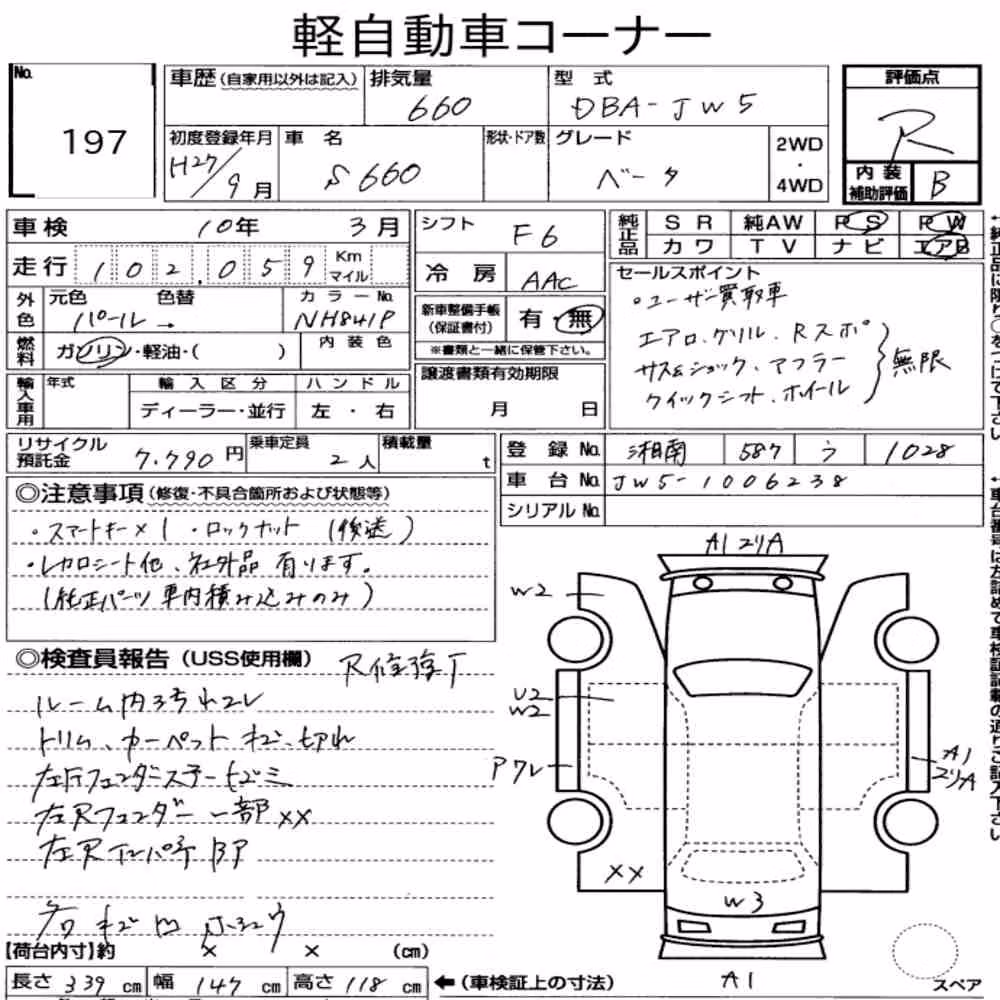 軽自動車コーナー
No. 197
車歴(自家用以外は記入) 排気量 660 型式 DBA-JW5
評価点 R
初度登録年月 H27/9月 車名 S660 形状・ドア数 グレード ベータ 2WD・4WD
内装補助評価 B
車検 10年 3月
走行 102,059 Km マイル
外色 元色 パール→ 色替 カラーNo. NH841P
燃料 ガソリン・軽油・( ) 内装色
輸入車用 年式 輸入区分 ハンドル
ディーラー・並行 左・右
シフト F6
冷房 AAC
新車整備手帳(保証書付) 有・無
※書類と一緒に保管下さい。
譲渡書類有効期限
月 日
純正品 SR 純AW PS PW
カワ TV ナビ エアB
セールスポイント
・ユーザー買取車
エアロ、グリル、Rスポ
サス&ショック、マフラー 無限
クイックシフト、ホイール
リサイクル預託金 7,790円 乗車定員 2人 積載量 t
登録No. 湘南 587 う 1028
車台No. JW5-1006238
シリアルNo.
◎注意事項(修復・不具合箇所および状態等)
・スマートキー×1 ・ロックナット(後送)
・レカロシート他、社外品有ります。
(純正パーツ車内積み込みのみ)
◎検査員報告(USS使用欄)
トリム、カーペット キズ、切れ
左Rフェンダー一部XX
左RインパネBP
A1
W2
U2
W2
A1
XX
W3
A1
【荷台内寸】約 × × (cm)
長さ 339 cm 幅 147 cm 高さ 118 cm ←(車検証上の寸法)
スペア